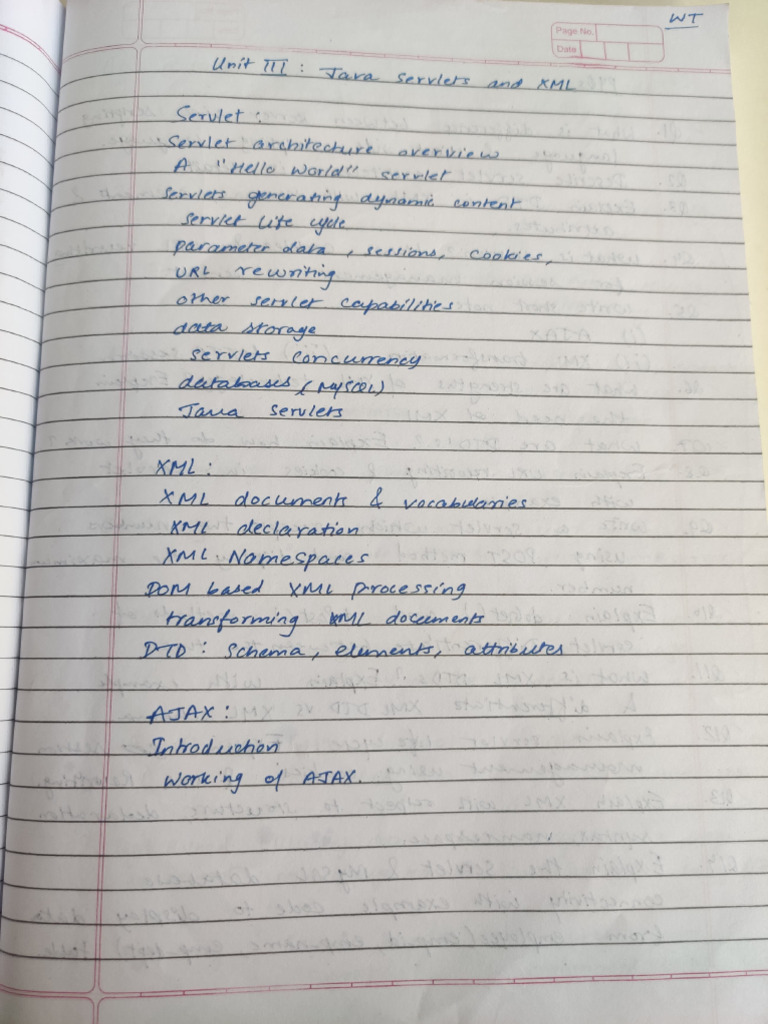 WT
Page No.
Date
Unit III : Java Servlets and XML
Servlet :
Servlet architecture overview
A "Hello World" servlet
Servlets generating dynamic content
servlet life cycle
parameter data , sessions, cookies,
URL rewriting
other servlet capabilities
data storage
servlets concurrency
databases (MySQL)
Java servlets
XML :
XML documents & vocabularies
XML declaration
XML Namespaces
DOM based XML processing
transforming XML documents
DTD : schema, elements, attributes
AJAX :
Introduction
working of AJAX.